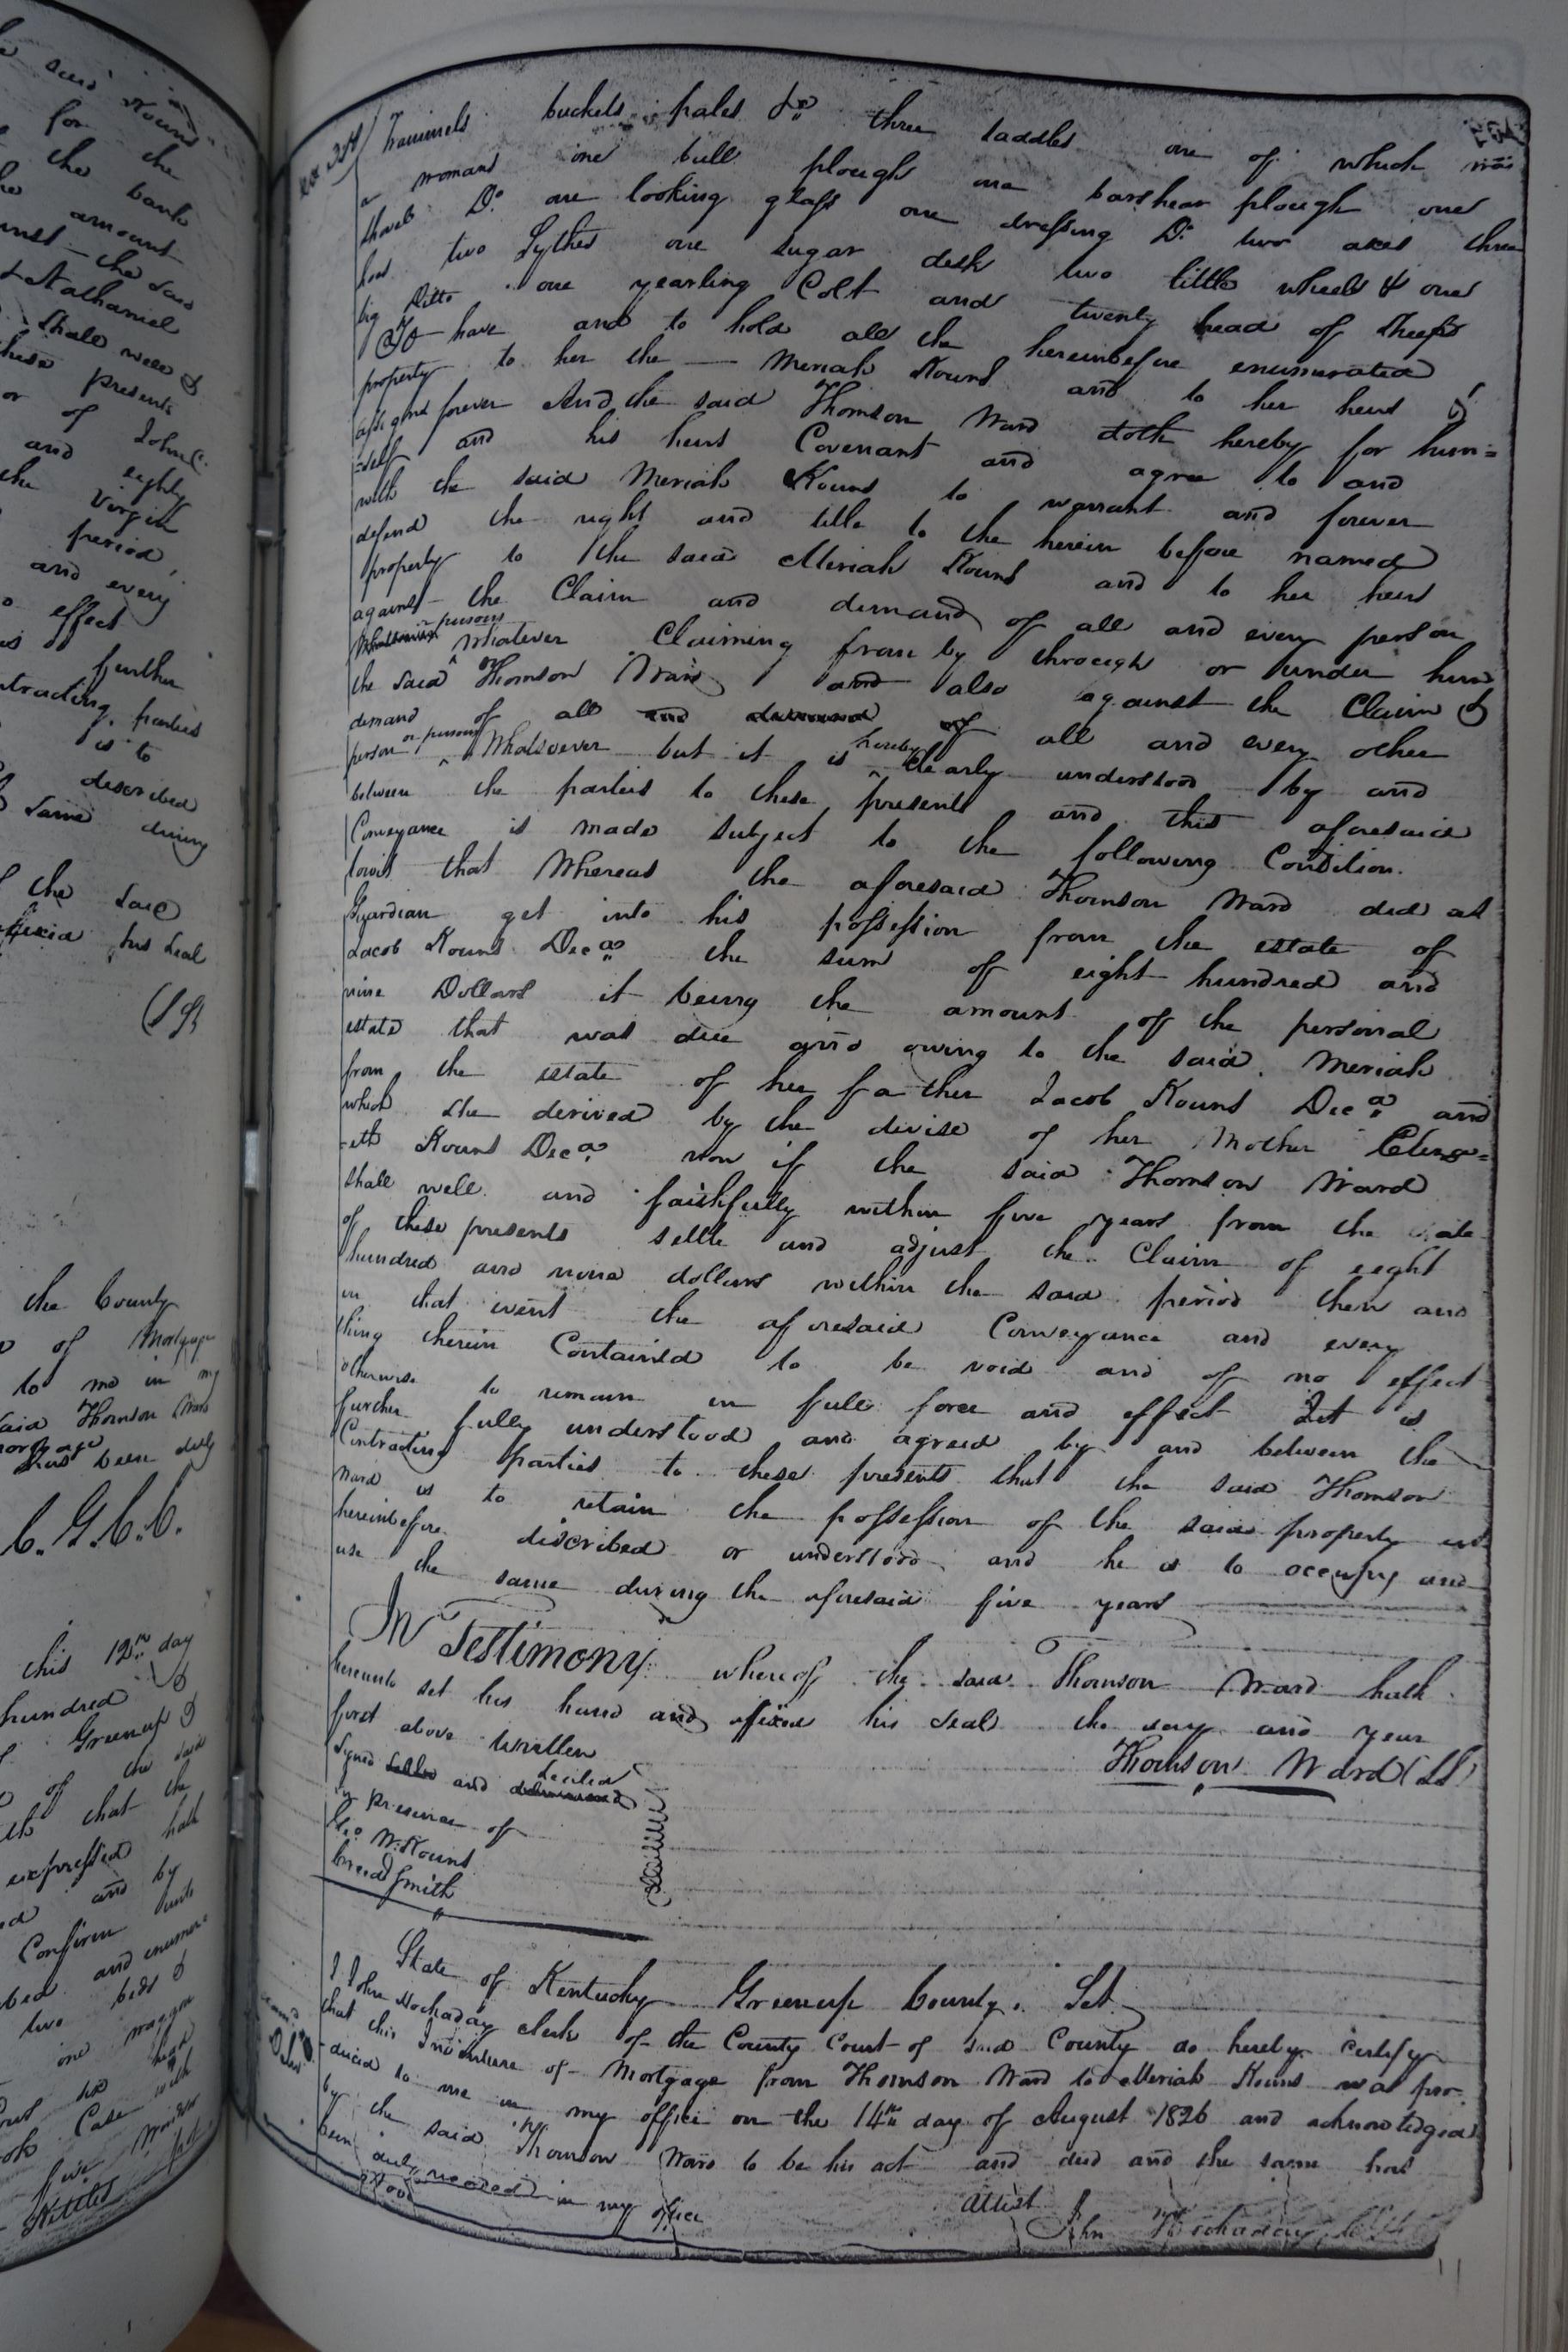 he said Kouns
for the
the bank
amount
the said
& Nathaniel
shall well &
these presents
or of John C.
and eighty
the Virgin
period,
and every
effect
further
contracting parties
is to
described
same during
the said
his seal
(LS)
the County
of Mortgage
to me in my
said Thomson Ward
been duly
C. G. C. C.
this 12th day
hundred &
Greenup &
of the said
that the
expressed hath
and by
Confirm unto
and enumer=
two beds &
one waggon
Case with
five
Kettles
Trammels buckets pales &c three saddles one of which was
a womans one bull plough one barshear plough one
shovel Do. one looking glass one dressing Do. two axes three
hoes two Sythes one sugar desk two little wheels & one
big Ditto one yearling Colt and twenty head of sheep
To have and to hold all the hereinbefore enumerated
property to her the — Meriah Kouns and to her heirs &
assigns forever And the said Thomson Ward doth hereby for him=
=self and his heirs Covenant and agree to and
with the said Meriah Kouns to warrant and forever
defend the right and title to the herein before named
property to the said Meriah Kouns and to her heirs
against the Claim and demand of all and every person
or persons whatever Claiming from by through or under him
the said Thomson Ward and also against the Claim &
demand of all and demand of all and every other
person or persons Whatsoever but it is hereby Clearly understood by and
between the parties to these presents and this aforesaid
Conveyance is made subject to the following Condition.
towit that Whereas the aforesaid Thomson Ward did as
Guardian get into his possession from the estate of
Jacob Kouns Decd. the sum of eight hundred and
nine Dollars it being the amount of the personal
estate that was due and owing to the said Meriah
from the estate of her father Jacob Kouns Decd. and
which she derived by the devise of her Mother
=eth Kouns Decd. now if the said Thomson Ward
shall well and faithfully within five years from the date
of these presents settle and adjust the Claim of eight
hundred and nine dollars within the said period then and
in that event the aforesaid Conveyance and every
thing therein Contained to be void and of no effect
otherwise to remain in full force and effect It is
further fully understood and agreed by and between the
Contracting parties to these presents that the said Thomson
Ward is to retain the possession of the said property
hereinbefore discribed or understood and he is to occupy and
use the same during the aforesaid five years
In Testimony whereof the said Thomson Ward hath
hereunto set his hand and afixed his seal the day and year
first above written
Thomson Ward (LS)
Signed and Sealed
in presence of
Geo. W. Kouns
Smith
State of Kentucky Greenup County. Sct.
I John Hockaday clerk of the County Court of said County do hereby certify
that this Indenture of Mortgage from Thomson Ward to Meriah Kouns was pro-
-duced to me in my office on the 14th day of August 1826 and acknowledged
by the said Thomson Ward to be his act and deed and the same has
been duly recorded in my office
Attest John Hockaday